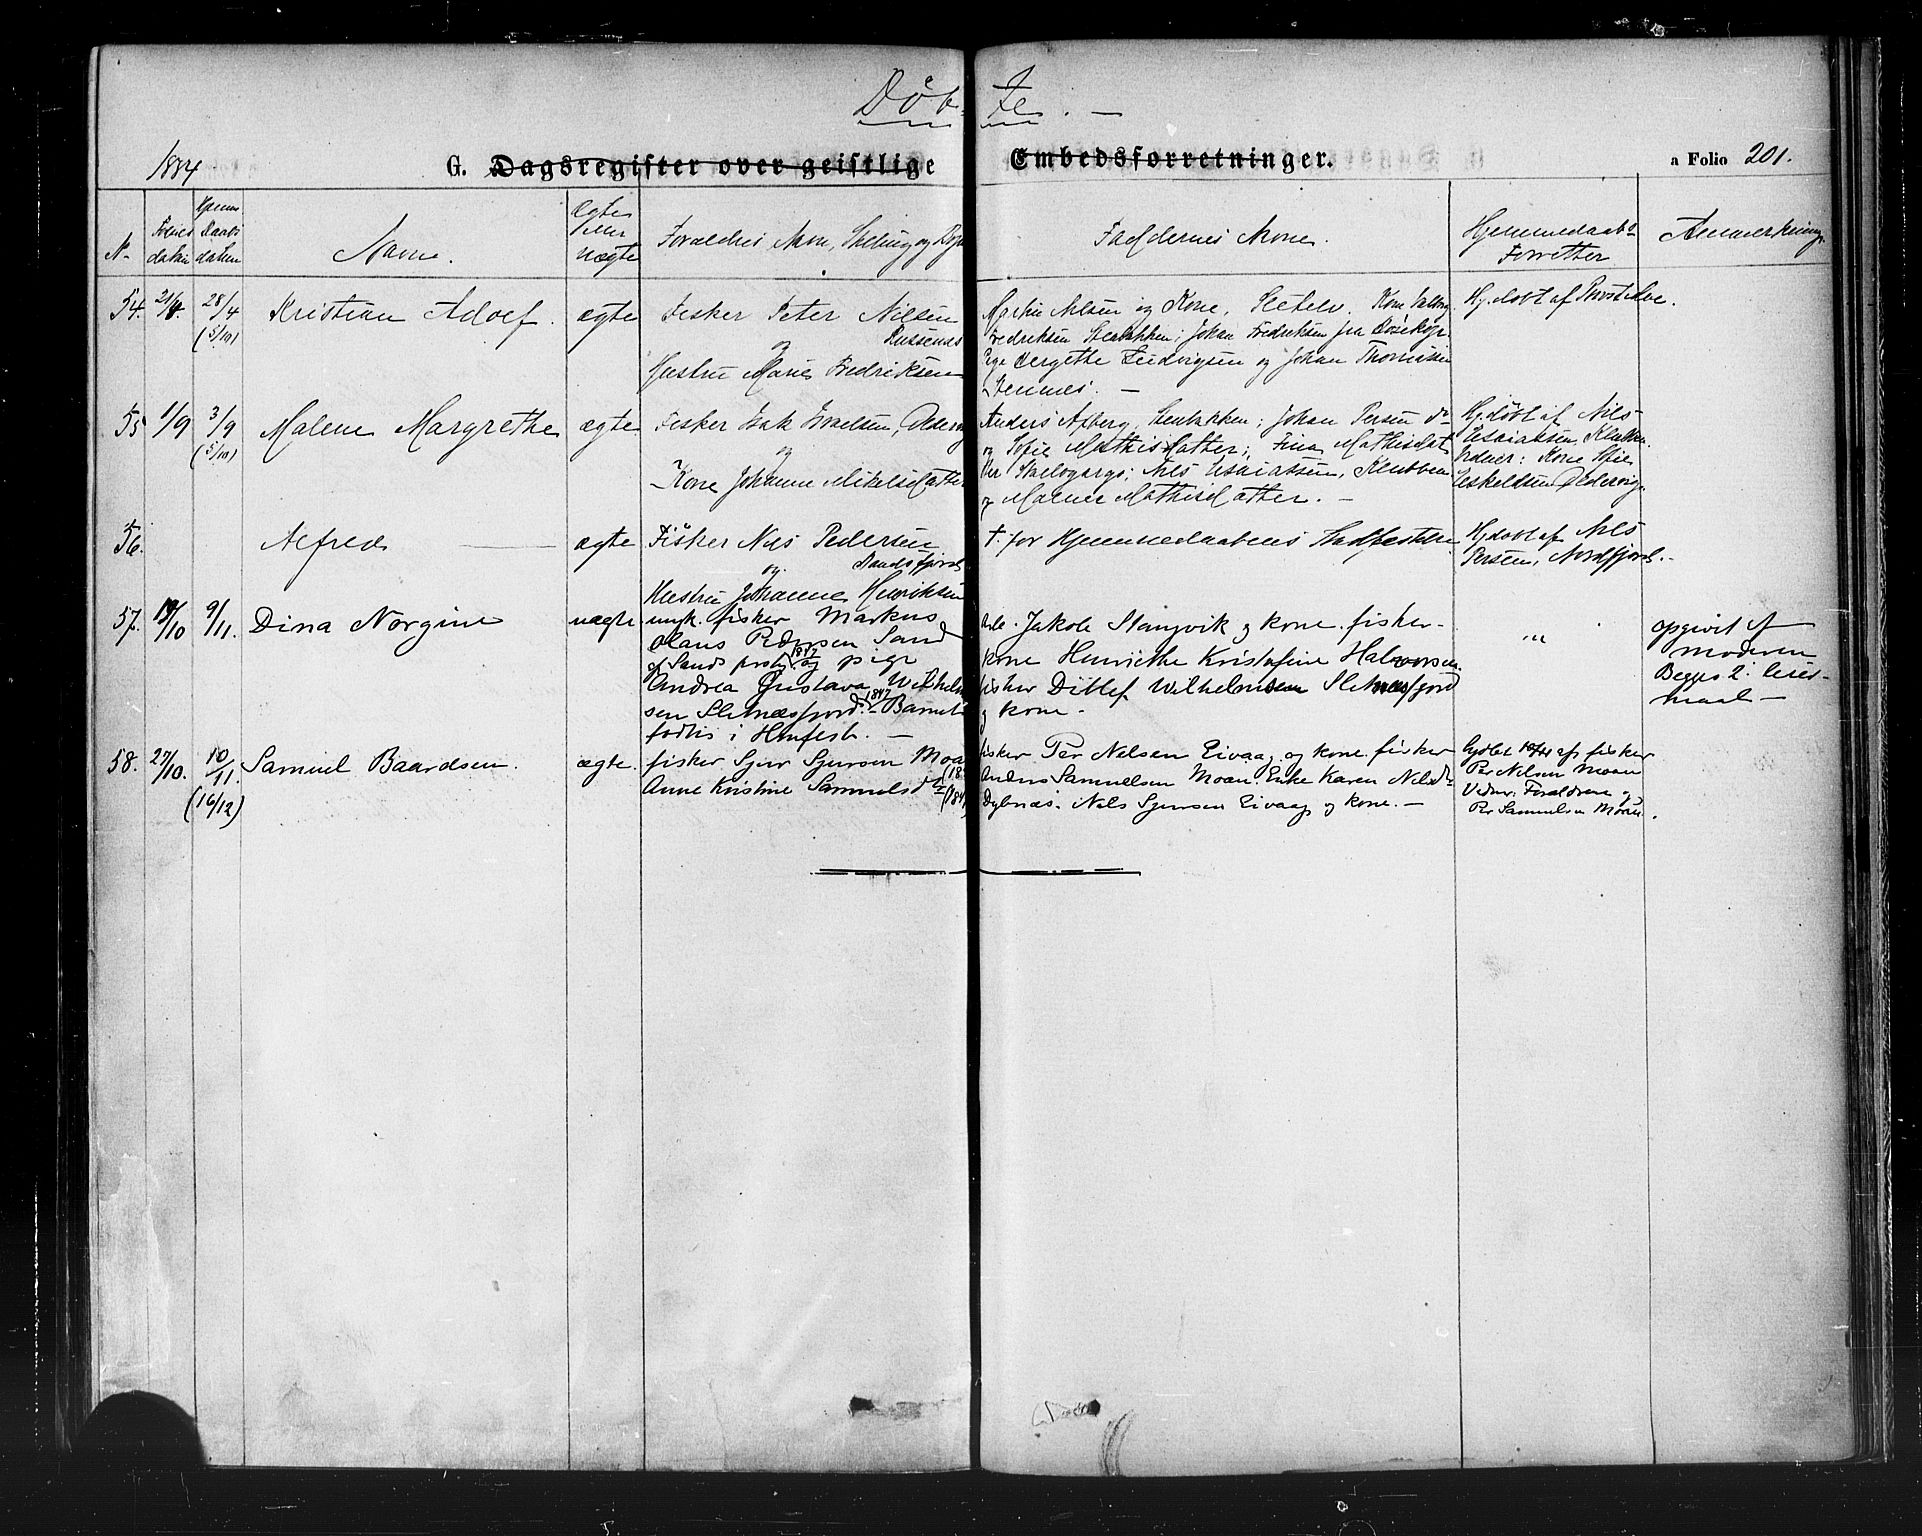 Døb- te. —
1884 G. Dagsregister over geistlige Embedsforretninger. a Folio 201.
No Fødsels datum Hjemme Daabs datum Navn. Ægte eller Uægte Forældres Navn, Stilling og Faddernes Navne. Hjemmedaabs Forretter Anmerkning.
54. 21/4. 28/4 Kristian Adolf. ægte Fisker Peter Nilsen
(5/10) Russenes
og
Hustru Marie Fredriksen
Martin Nilsen og Kone, Sletelv. Kone
Fredriksen Stenbakken; Johan Fredriksen fra
Pige Bergette Ludvigsen og Johan Thomassen
Hj.døbt af
55 1/9 3/9 Malene Margrethe ægte Fisker Isak Israelsen, Oldervig
(5/10) og
Kone Johanne Mikelsdatter
Anders Asberg, Stenbakken; Johan Persen do
og Sofie Mathisdatter; Fina Mathisdat
ter Nils Esaiassen, Klubben
og Marner Mathisdatter. —
Hj.døbt af Nils
Esaiassen, Klubben.
Vidner: Kone Sofie
Eskeldsen Oldervig.
56. Alfred ægte Fisker Nils Pedersen
og Sandsfjord
Hustru Johanne Henriksen
† før Hjemmedaabens Stadfæstelse
Hj.døbt af Nils
Persen, Nordfjord.
57. 19/10 9/11. Dina Norgine uægte ungk. fisker Markus
Hans Pedersen Sand
af Sandsfjord, 1817 og pige
Andrea Gustava Wilhelm
sen Sletnæsfjord. 1847 — Barnet
fødtes i Hmfest. —
Jakob Stangvik og kone. fisker-
kone Henriethe Kristofine Halvorsen.
fisker Ditlef Wilhelmsen Sletnæsfjord
og kone. -
"
opgivet af
moderen
Begges 2. leies-
maal —
58. 27/10. 10/11 Samuel Baardsen. ægte. fisker Sjur Sjursen Moan
(16/12) Anne Kristine Samuelsd
fisker Per Nilsen Eivaag og kone. fisker
Anders Samuelsen Moan. Enke Karen Nilsd
Dybnæs. Nils Sjursen Eivaag og kone. —
Hjdøbt 10/11 af fisker
Per Nilsen Moan
Vidner: Forældrene og
Per Samuelsen Moan.